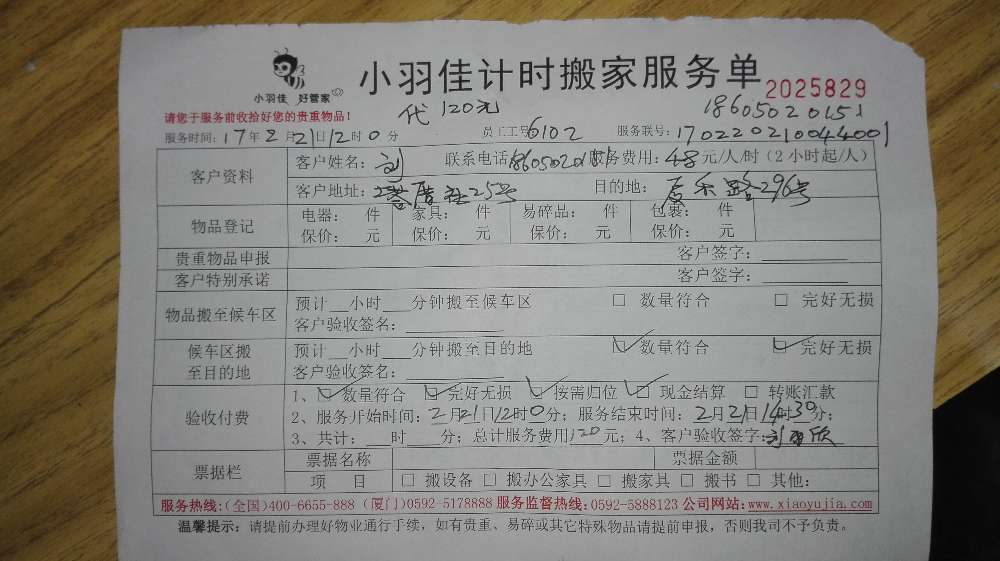 小羽佳计时搬家服务单 2025829
小羽佳 好管家
代 120元 18605020151
请您于服务前收拾好您的贵重物品！
服务时间：17年2月21日12时0分 员工工号6102 服务联号：170220210044001
客户资料 客户姓名：刘 联系电话18605020151服务费用：48元/人/时（2小时起/人）
客户地址：25号 目的地：厦禾路296号
物品登记 电器： 件 家具： 件 易碎品： 件 包裹： 件
保价： 元 保价： 元 保价： 元 保价： 元
贵重物品申报 客户签字：
客户特别承诺 客户签字：
物品搬至候车区 预计__小时___分钟搬至候车区 □ 数量符合 □ 完好无损
客户验收签名：
候车区搬至目的地 预计__小时___分钟搬至目的地 ☑ 数量符合 ☑ 完好无损
客户验收签名：
验收付费 1、☑ 数量符合 ☑ 完好无损 ☑ 按需归位 ☑ 现金结算 □ 转账汇款
2、服务开始时间：2月21日12时0分；服务结束时间：2月21日14时30分；
3、共计：___时___分；总计服务费用120元；4、客户验收签字：刘
票据栏 票据名称 票据金额
项 目 □ 搬设备 □ 搬办公家具 □ 搬家具 □ 搬书 □ 其他：
服务热线：(全国)400-6655-888（厦门)0592-5178888 服务监督热线：0592-5888123 公司网站：www.xiaoyujia.com
温馨提示：请提前办理好物业通行手续，如有贵重、易碎或其它特殊物品请提前申报，否则我司不予负责。